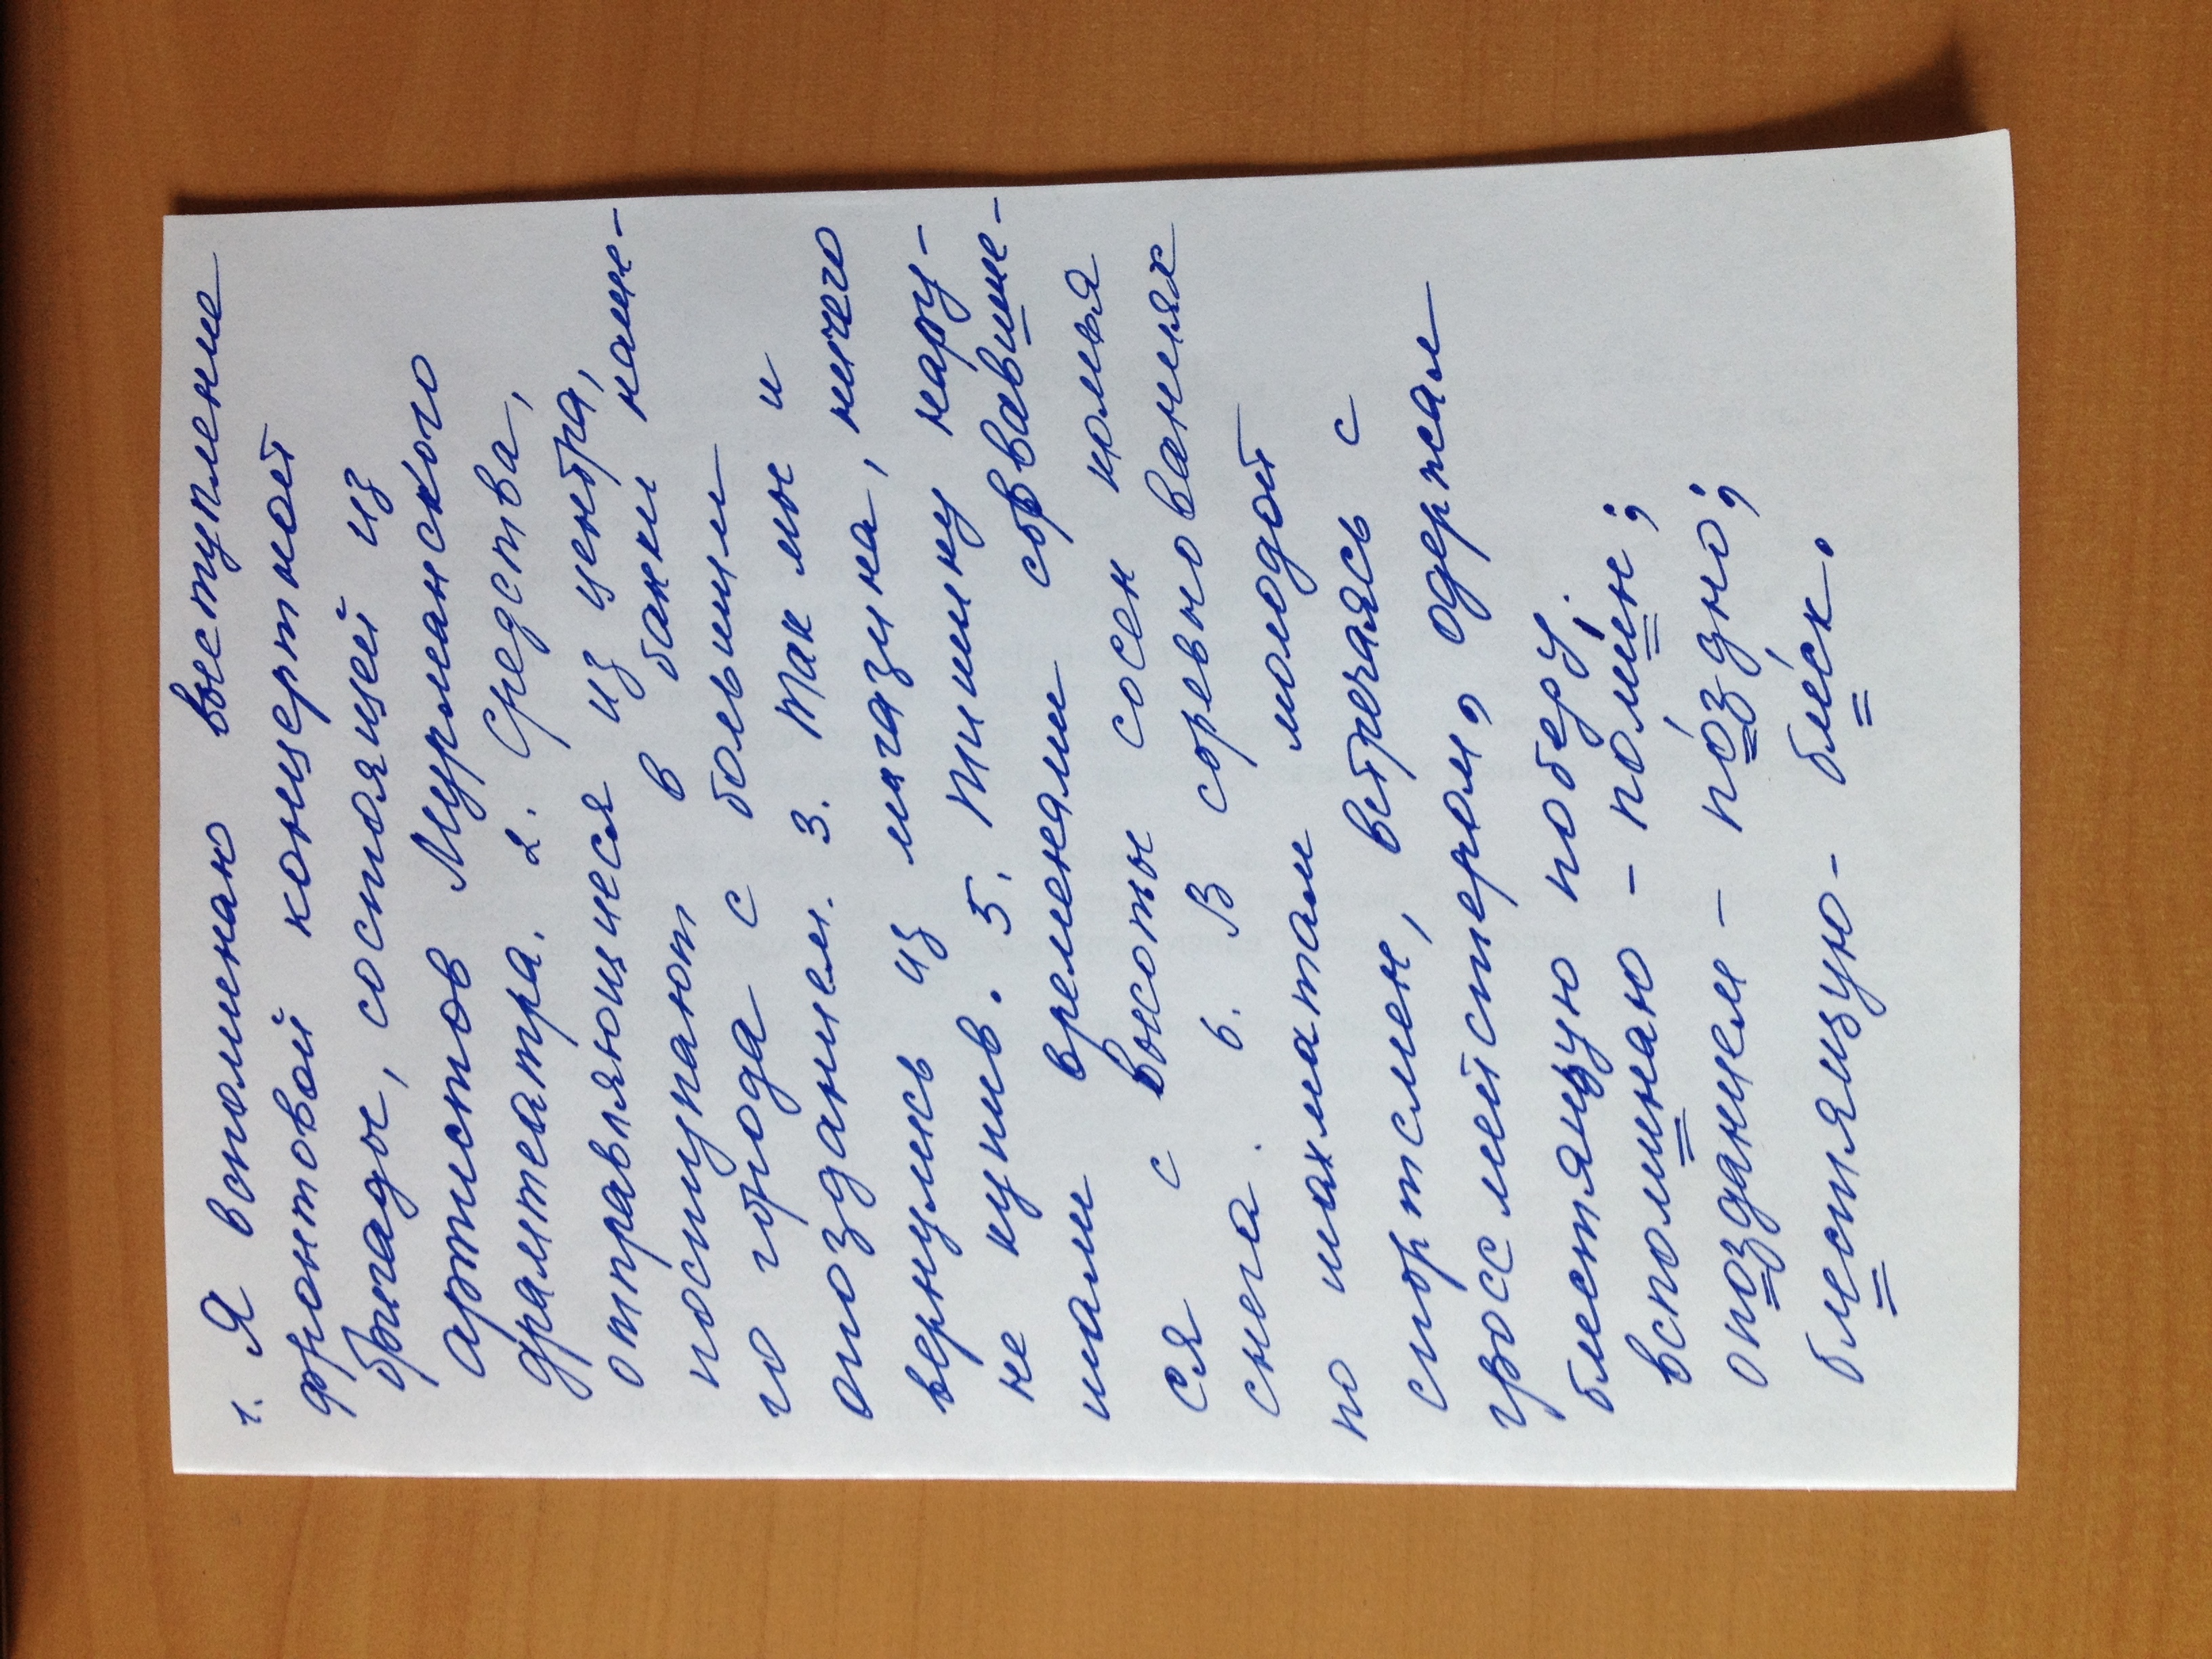 1. Я вспоминаю выступление
фронтовой концертной
бригады, состоящей из
артистов Мурманского
драмтеатра. 2. Средства,
отправляющиеся из центра,
поступают в банки наше-
го города с большим
опозданием. 3. Так мы и
вернулись из магазина, ничего
не купив. 5. Тишину нару-
шали временами сорвавшие-
ся с высоты сосен комья
снега. 6. В соревнованиях
по шахматам молодой
спортсмен, встречаясь с
гроссмейстером, одержал
блестящую победу.
вспоминаю – помин;
опозданием – поздно;
блестящую – блеск.